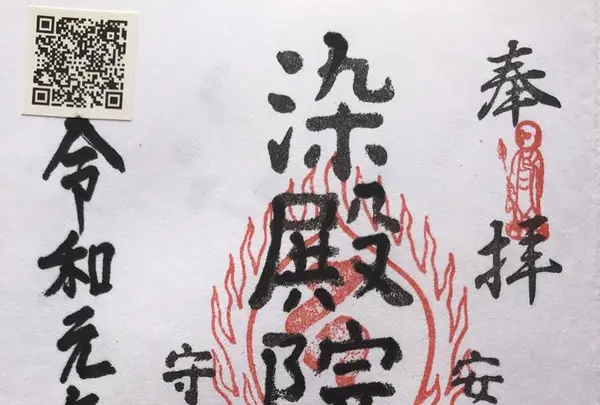 奉拝
安
染殿院
守
令和元